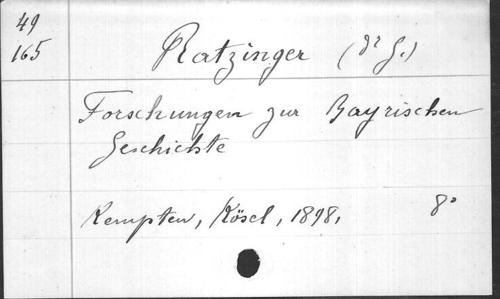 49
165
Ratzinger (Dr G.)
Forschungen zur Bayrischen
Geschichte
Kempten, Kösel, 1898, 8°